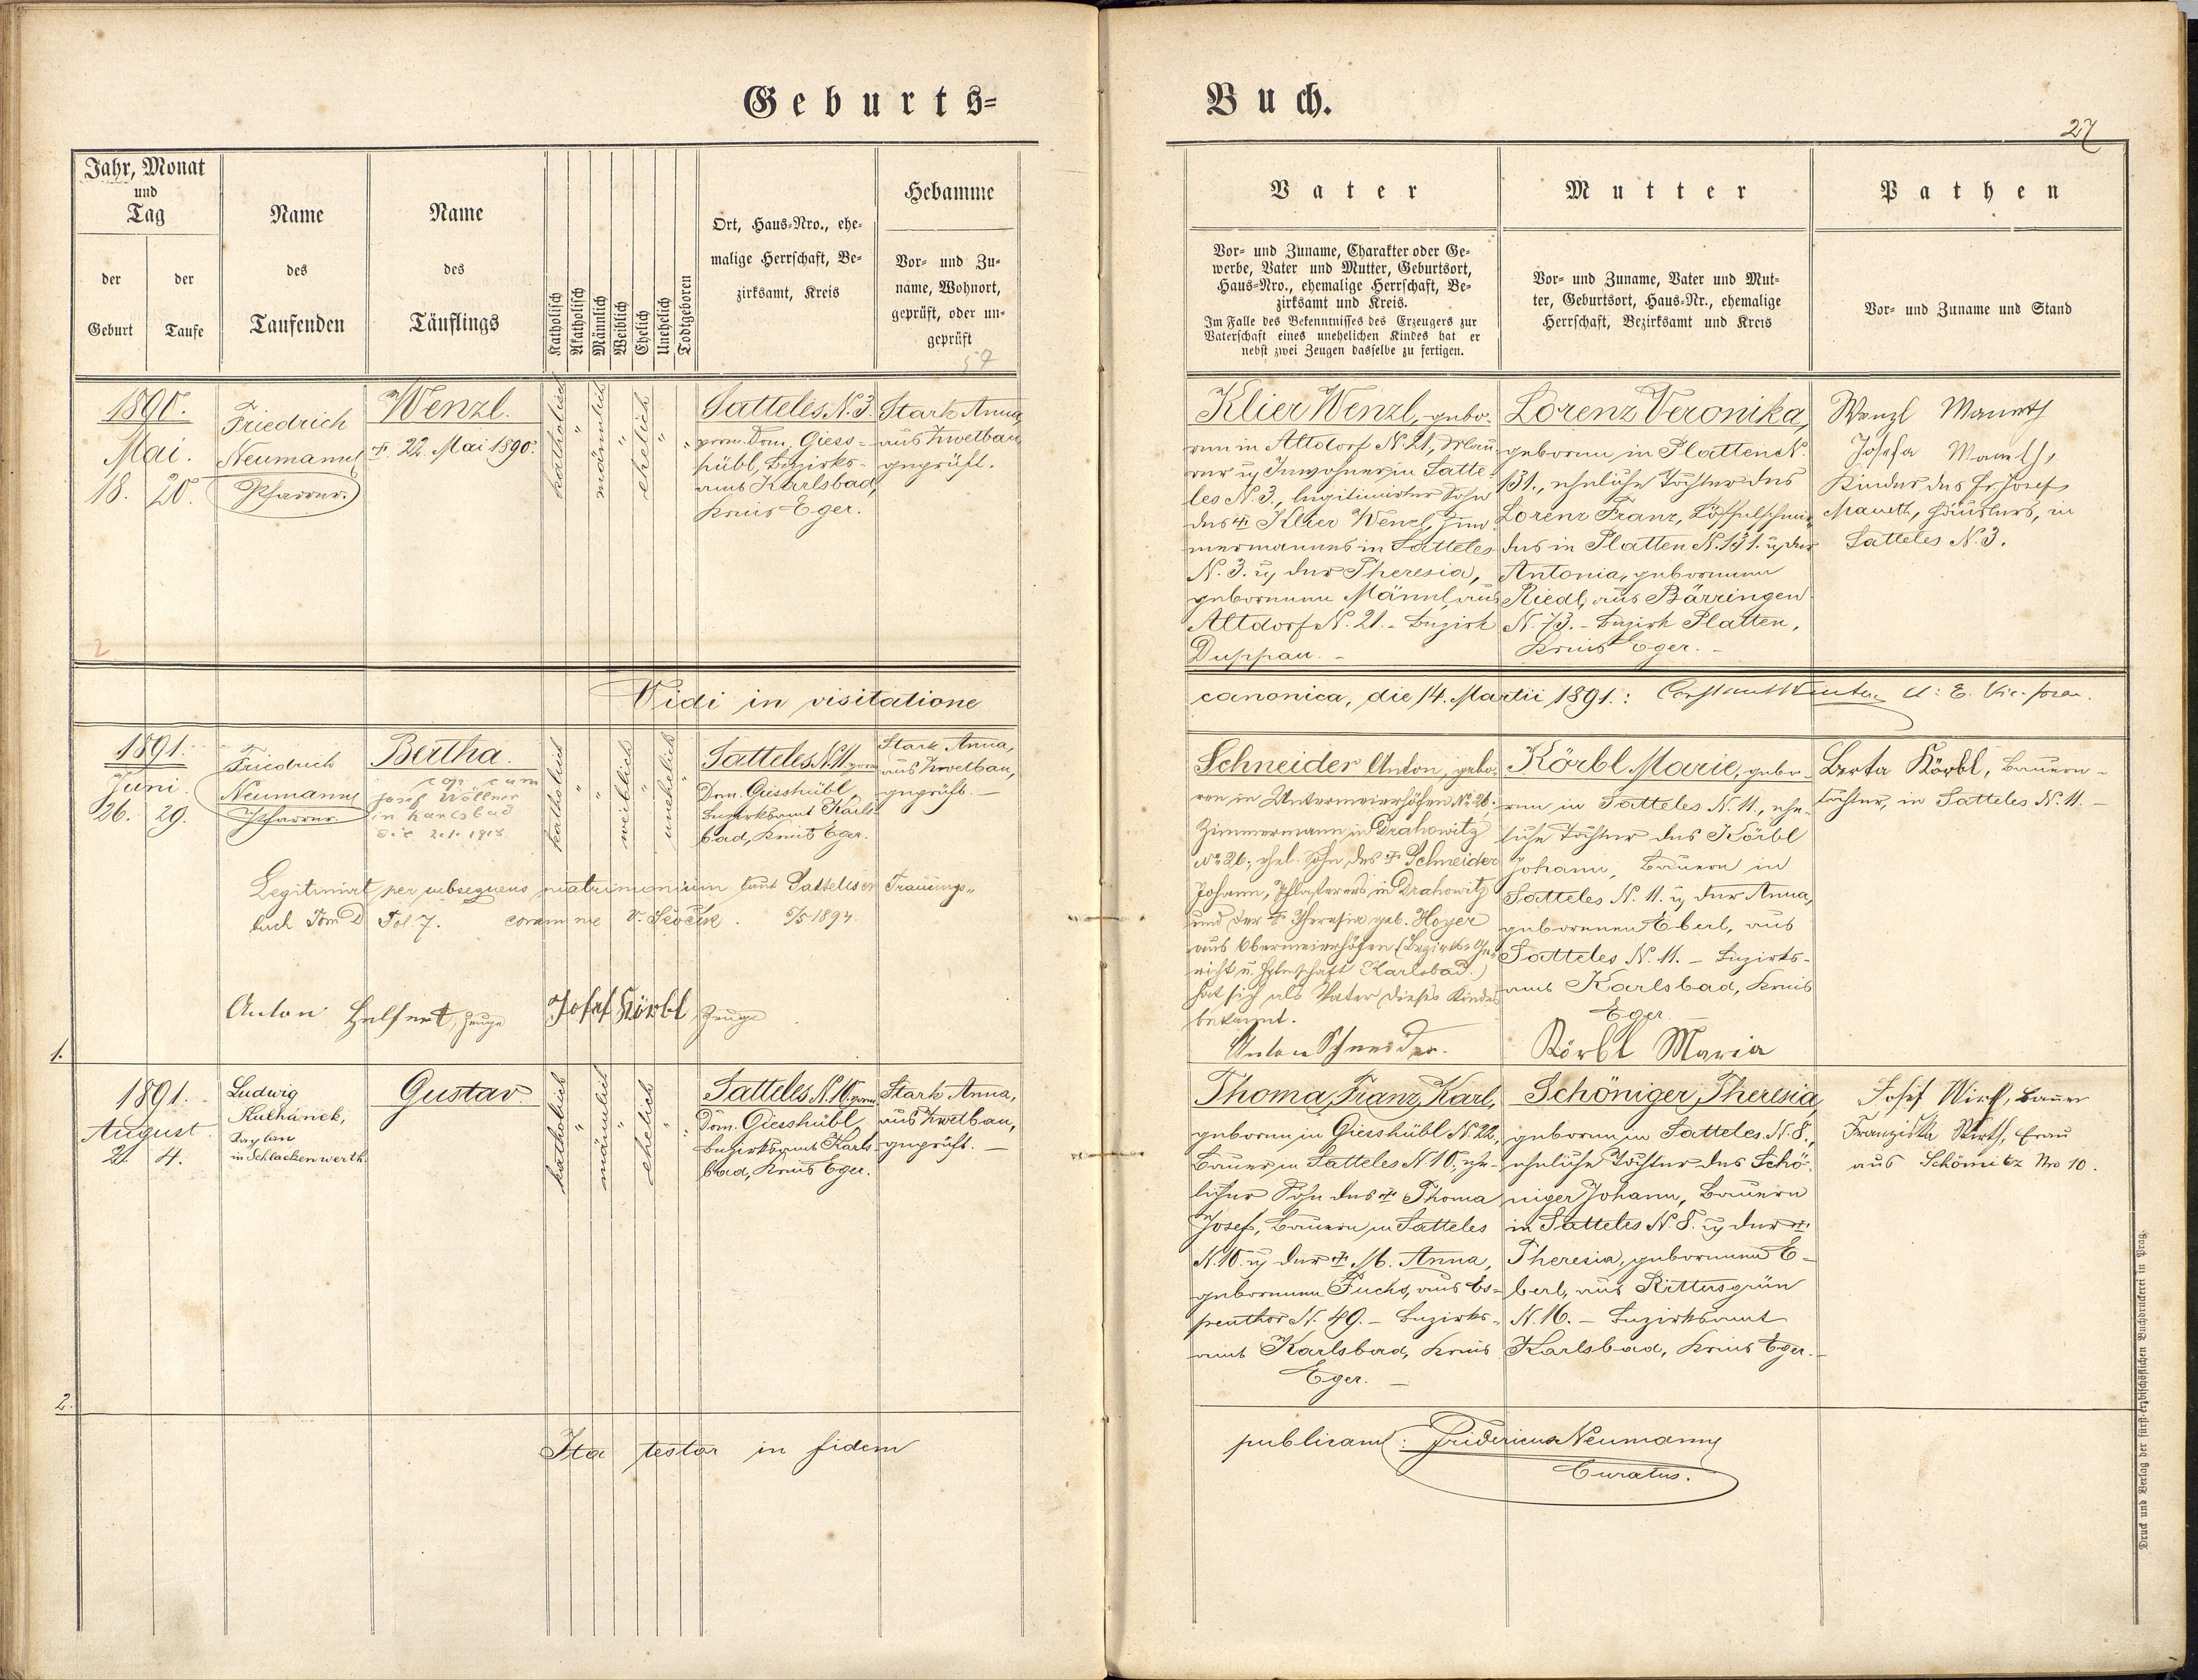 Geburts=
Buch.
27
Jahr, Monat
und
Tag
der
Geburt
der
Taufe
Name
des
Taufenden
Name
des
Täuflings
Katholisch
Akatholisch
Männlich
Weiblich
Ehelich
Unehelich
Todtgeboren
Ort, Haus=Nro., ehe=
malige Herrschaft, Be=
zirksamt, Kreis
Hebamme
Vor= und Zu=
name, Wohnort,
geprüft, oder un=
geprüft
57
Vater
Vor= und Zuname, Charakter oder Ge=
werbe, Vater und Mutter, Geburtsort,
Haus=Nro., ehemalige Herrschaft, Be=
zirksamt und Kreis.
Im Falle des Bekenntnisses des Erzeugers zur
Vaterschaft eines unehelichen Kindes hat er
nebst zwei Zeugen dasselbe zu fertigen.
Mutter
Vor= und Zuname, Vater und Mut=
ter, Geburtsort, Haus=Nr., ehemalige
Herrschaft, Bezirksamt und Kreis
Pathen
Vor= und Zuname und Stand
1890.
Mai.
18. 20.
Friedrich
Neumann
Pfarrer.
Wenzl.
† 22. Mai 1890.
katholisch
"
männlich
"
ehelich
"
"
Satteles N. 3.
vorm. Dom. Giess=
hübl, Bezirks=
amt Karlsbad,
Kreis Eger.
Stark Anna,
aus Zwetbau,
geprüft.
Klier Wenzl, gebo=
ren in Altdorf N. 21, Mau=
rer u. Inwohner in Satte=
les N. 3., legitimirter Sohn
des † Klier Wenzl, Zim=
mermannes in Satteles
N. 3. u. der Theresia,
geborenen Männl, aus
Altdorf N. 21. - Bezirk
Duppau. -
Lorenz Veronika,
geboren in Platten N.
131., eheliche Tochter des
Lorenz Franz, Löffelschmie=
des in Platten N. 131. u. der
Antonia, geborenen
Riedl, aus Bärringen
N. 73. - Bezirk Platten,
Kreis Eger. -
Wenzl Maneth
Josefa Maneth,
Kinder des H. Josef
Maneth, Häuslers, in
Satteles N. 3.
2
Vidi in visitatione
canonica, die 14. Martii 1891.:
1891.
Juni.
26. 29.
Friedrich
Neumann
Pfarrer.
Bertha.
cop. cum
Josef Wöllner
in Karlsbad
die 20.1. 1918
katholisch
"
"
weiblich
"
unehelich
"
Satteles N. 11. vorm.
Dom. Giesshübl,
Bezirksamt Karls=
bad, Kreis Eger.
Stark Anna,
aus Zwetbau,
geprüft. -
Schneider Anton, gebo=
ren in Untermeierhöfen No 26;
Zimmermann in Drahowitz
No 26; ehel. Sohn des † Schneider
Johann, Pflasterers in Drahowitz
und der † Theresia geb. Hoyer
aus Obermeierhöfen (Bezirks=Ge=
richt u. Herrschaft Karlsbad.)
hat sich als Vater dieses Kindes
bekannt.
Anton Schneider.
Körbl Marie, gebo=
ren in Satteles N. 11., ehe=
liche Tochter des Körbl
Johann, Bauern in
Satteles N. 11. u. der Anna,
geborenen Eberl, aus
Satteles N. 11. - Bezirks=
amt Karlsbad, Kreis
Eger.
Körbl Maria
Berta Körbl, Bauern=
tochter, in Satteles N. 11. -
Legitimirt per subsequens matrimonium laut Satteleser Trauungs=
buch Tom D Fol 7. coram me 5/5 1894
Anton Helfert, Zeuge Josef Körbl Zeuge
1.
1891.
August.
2. 4.
Ludwig
Kulhánek,
Kaplan
in Schlackenwerth.
Gustav.
katholisch
"
männlich
"
ehelich
"
"
Satteles N. 10. vorm.
Dom. Giesshübl,
Bezirksamt Karls=
bad, Kreis Eger.
Stark Anna,
aus Zwetbau,
geprüft. -
Thoma Franz Karl,
geboren in Giesshübl N. 22,
Bauer in Satteles N 10., ehe=
licher Sohn des † Thoma
Josef, Bauern in Satteles
N. 10. u. der † M. Anna,
geborenen Fuchs, aus Es=
penthor N. 49. - Bezirks=
amt Karlsbad, Kreis
Eger. -
Schöniger Theresia,
geboren in Satteles N. 8.,
eheliche Tochter des Schö=
niger Johann, Bauern
in Satteles N. 8. u. der †
Theresia, geborenen E=
berl, aus Rittersgrün
N. 16. - Bezirksamt
Karlsbad, Kreis Eger. -
Josef Wirth, Bauer
Franziska Wirth, Frau
aus Schömitz Nro 10.
2.
Ita testor in fidem
publicam: Fridericus Neumann
Curatus.
Druck und Verlag der fürst=erzbischöflichen Buchdruckerei in Prag.